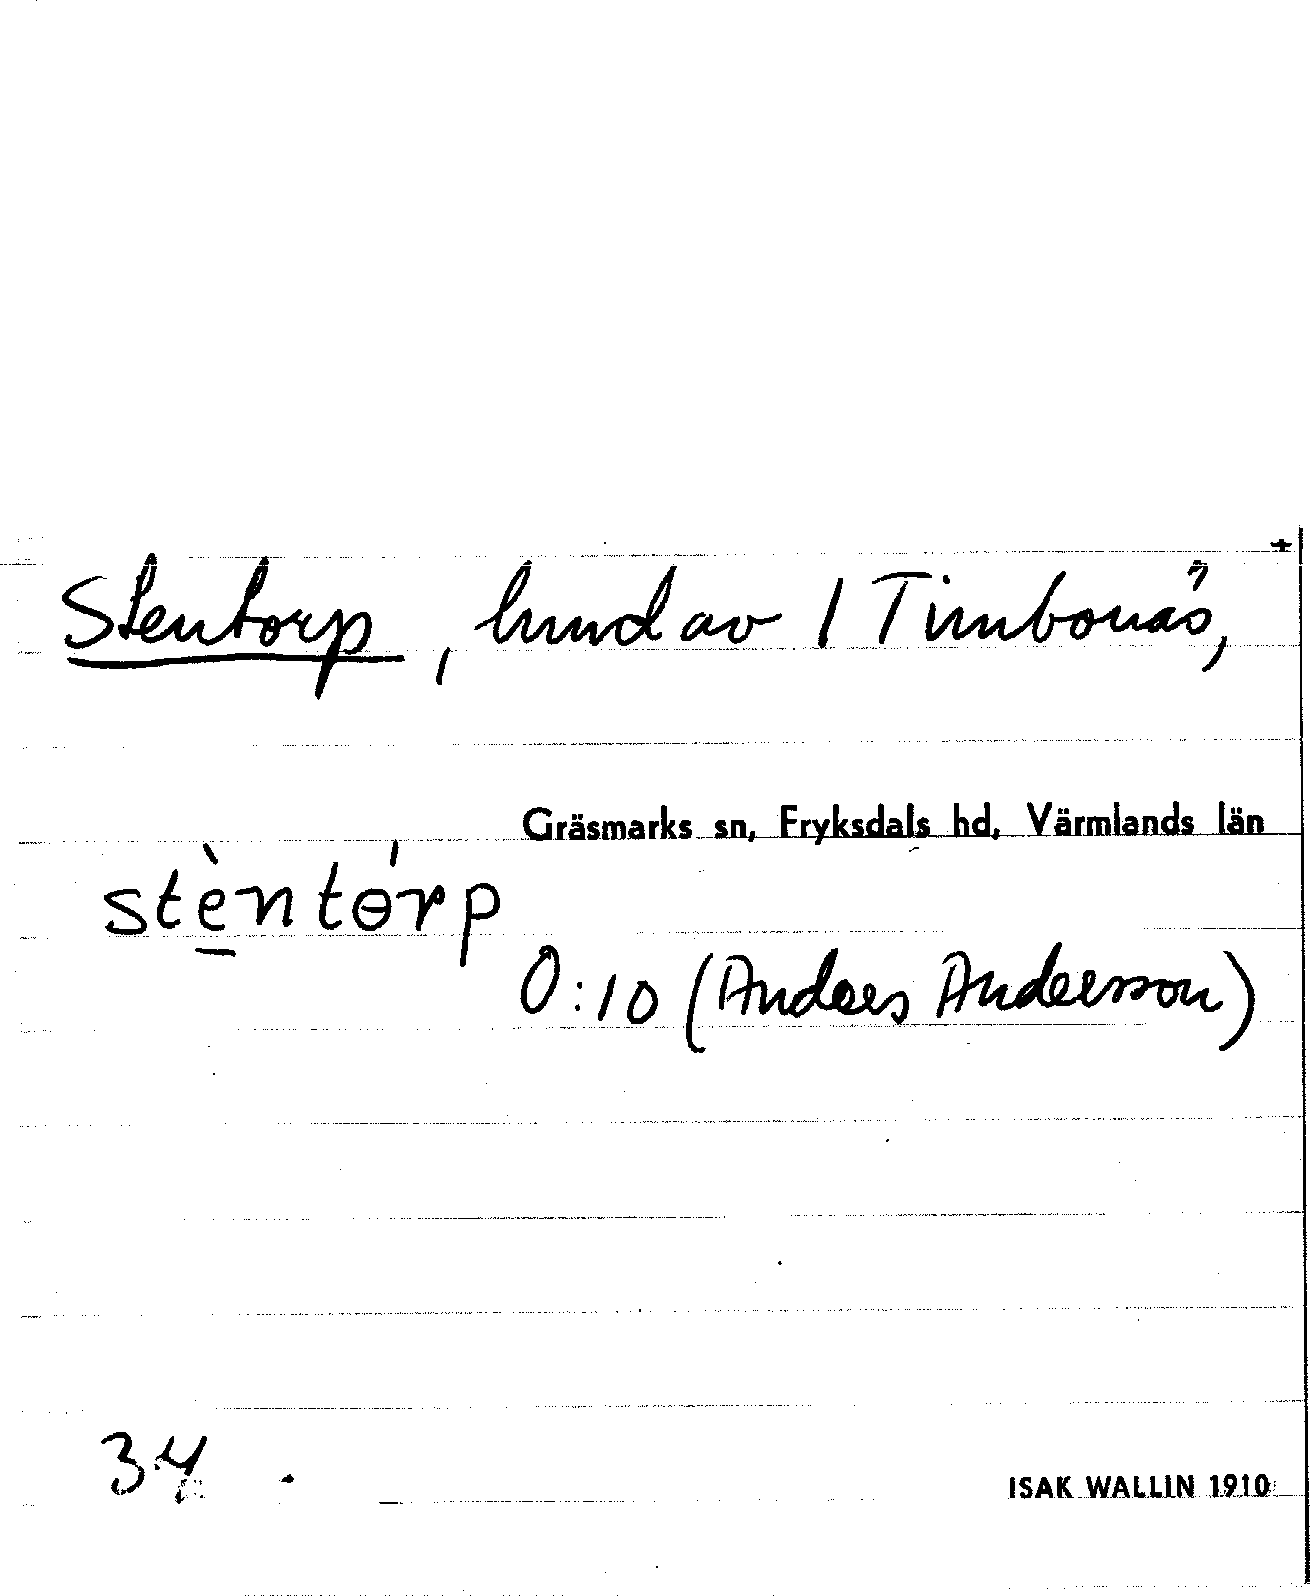 Stentorp, hmd av 1 Timbonäs,
Gräsmarks sn, Fryksdals hd, Värmlands län
stèntɵ́rp
0:10 (Anders Andersson)
34
ISAK WALLIN 1910